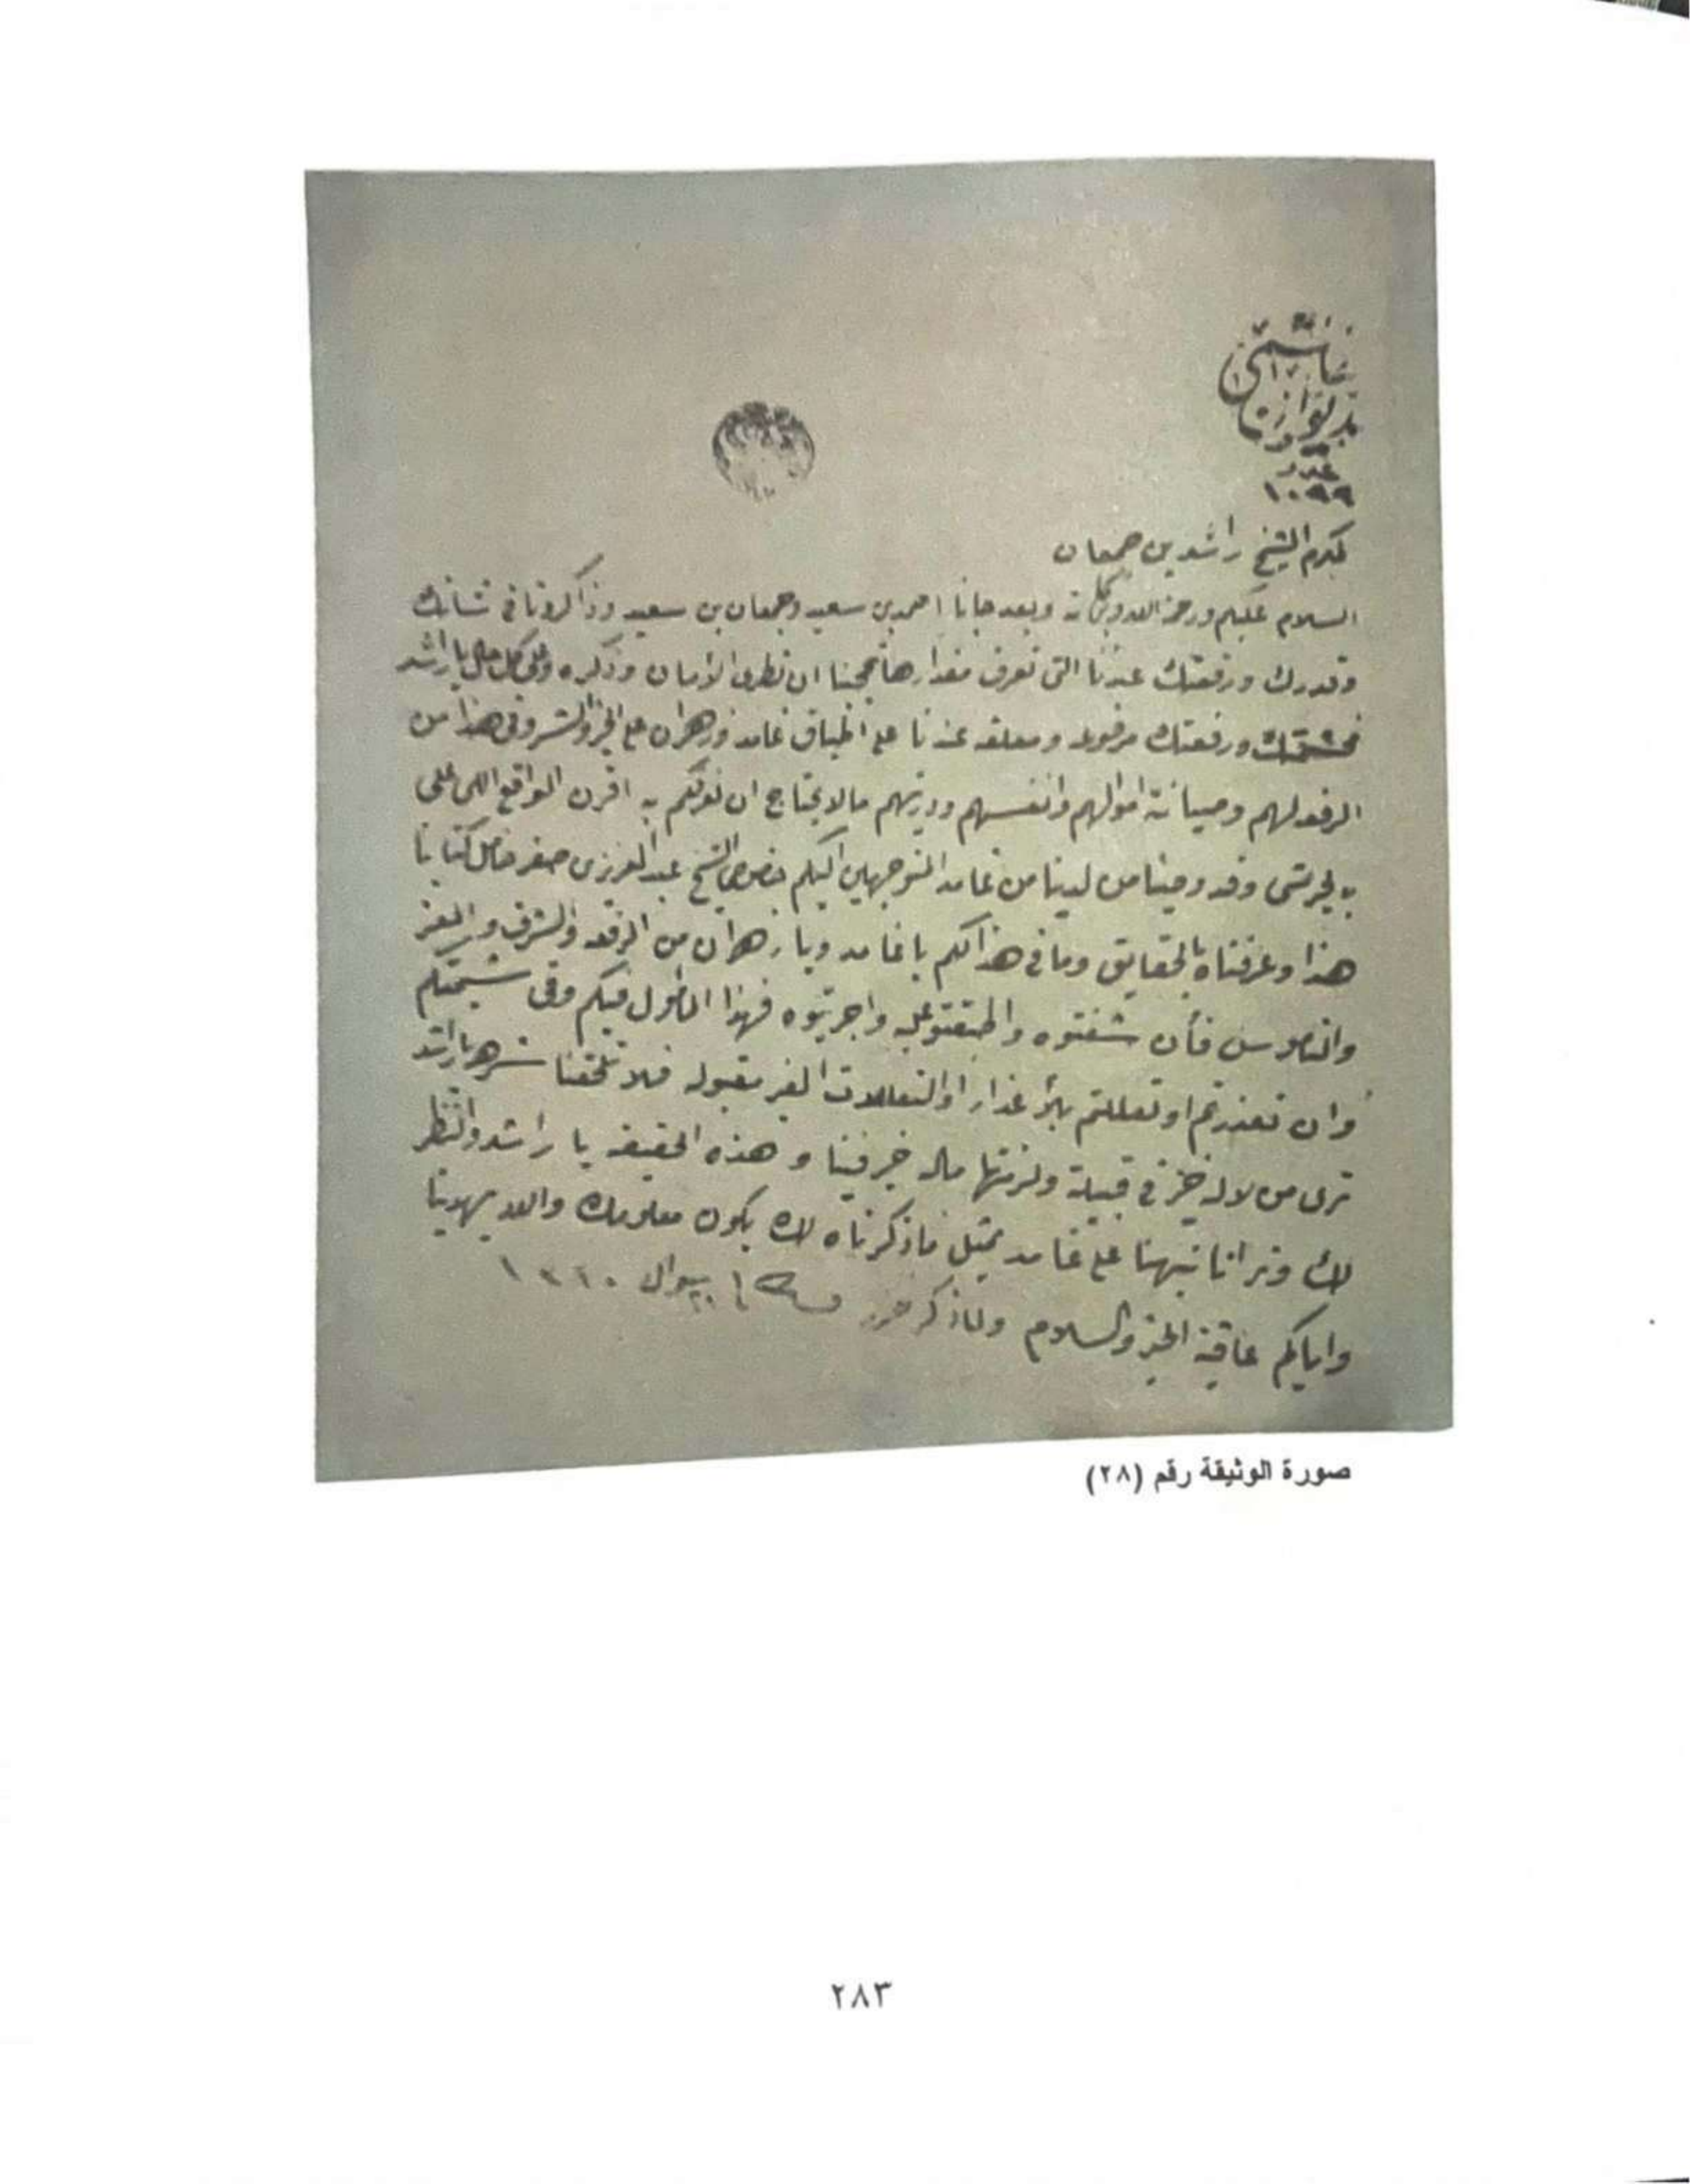 عدد
١٠٩٩
المكرم الشيخ راشد بن جمعان
السلام عليكم ورحمة الله وبركاته وبعد جانا احمد بن سعيد وجمعان بن سعيد وذاكرونا في شانك
وقدرك ورفعتك عندنا التي تعرف مقدارها عجبنا ان نطرى الامان وذكره وعلى كل حال يا راشد
فحشمتك ورفعتك مرفوعه ومعلقه عندنا على اطباق غامد وزهران على الخير والشر وفي هذا من
الرفعه لهم وصيانة اموالهم وانفسهم وديرتهم مالا يحتاج ان نعرفكم به اقرن الواقع اللى على
به لجرشى وقد وصينا من لدينا من غامد المتوجهين اليكم خصوصا الشيخ عبد العزيز بن صقر حامل كتابنا
هذا وعرفناه بالحقايق وما في هذا لكم يا غامد ويا زهران من الرفعه والشرف و العز
والناموس فأن شفتوه واطبقتو عليه واجريتوه فهذا المامول فيكم وفى شيمتكم
وان تعذرتم او تعللتم بالاعذار او التعللات الغير مقبوله فلا تلحقنا شرهه يا راشد
ترى من لا له خير في قبيلة ولزمتها ماله خير فينا و هذه الحقيقه يا راشد والنظر
لك وترانا نبهنا على غامد بمثل ماذكرناه لك يكون معلومك والله يهدينا
واياكم عاقبة الخير والسلام ولماذكر حرر
صورة الوثيقة رقم (٢٨)
٢٨٣